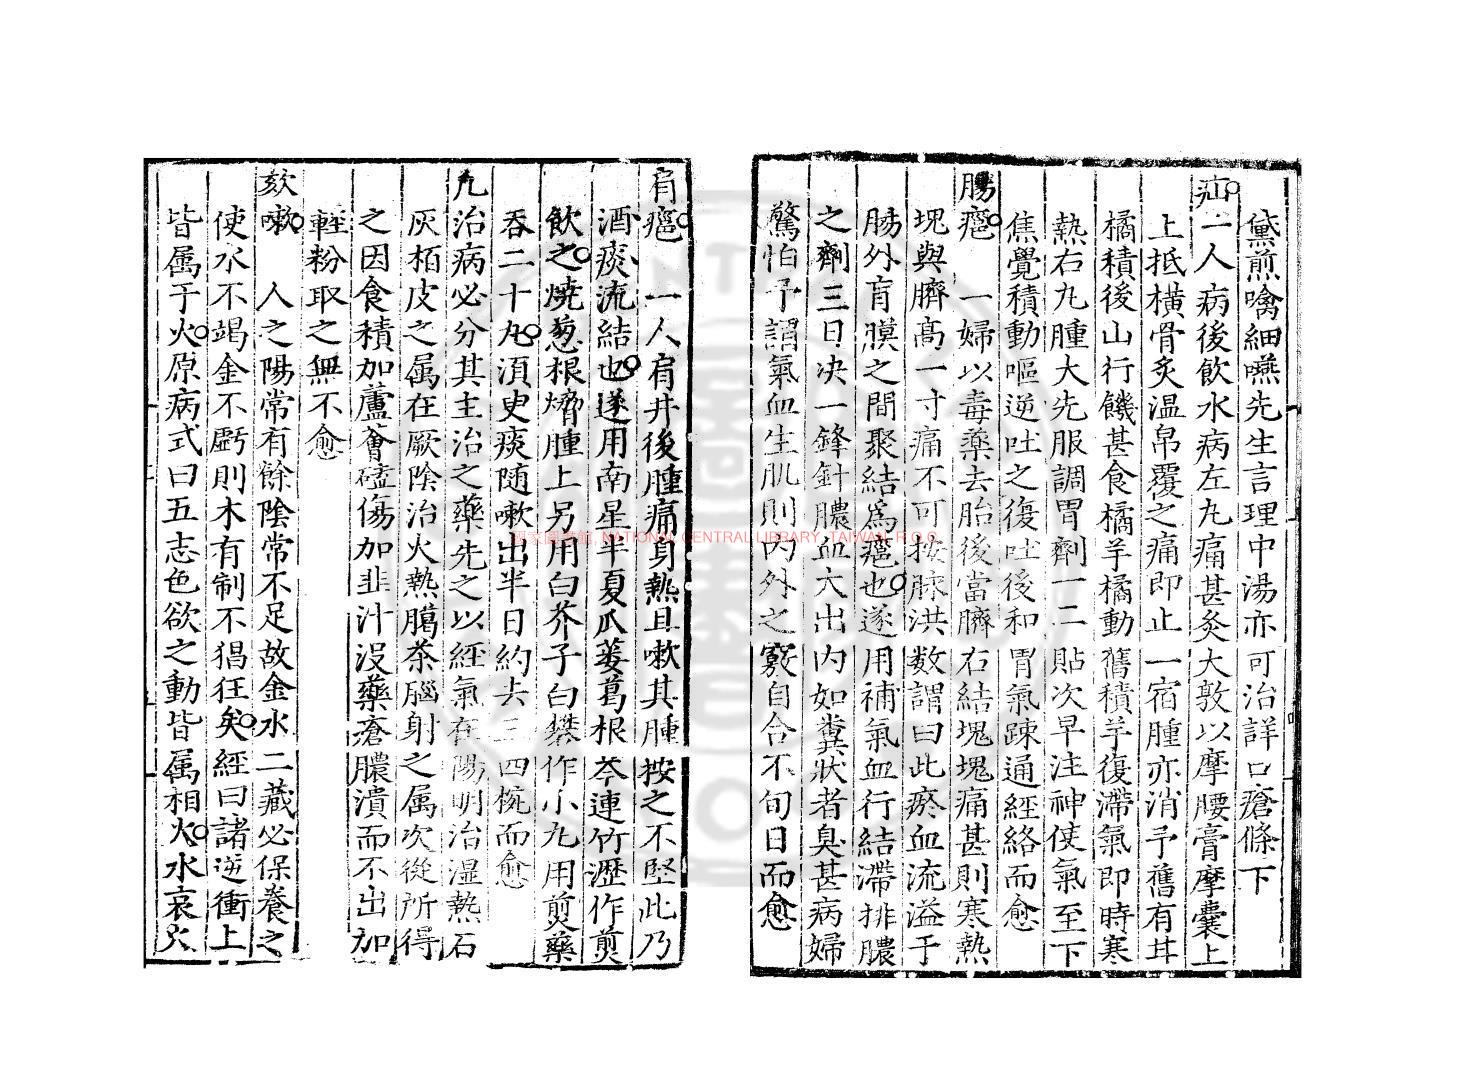 黛煎噙細嚥先生言理中湯亦可治詳口瘡條下
疝一人病後飲水病左丸痛甚灸大敦以摩腰膏摩囊上
上抵橫骨炙温帛覆之痛即止一宿腫亦消予舊有疝
橘積後山行饑甚食橘芋橘動舊積芋復滯氣即時寒
熱右丸腫大先服調胃劑一二貼次早注神使氣至下
焦覺積動嘔逆吐之復吐後和胃氣踈通經絡而愈
腸癰 一婦以毒藥去胎後當臍右結塊塊痛甚則寒熱
塊與臍高一寸痛不可按脉洪數謂曰此瘀血流溢于
腸外肓膜之間聚結爲癰也遂用補氣血行結滯排膿
之劑三日决一鋒針膿血大出内如糞狀者臭甚病婦
驚怕予謂氣血生肌則内外之竅自合不旬日而愈
肩癰 一人肩井後腫痛身熱且嗽其腫按之不堅此乃
酒痰流結也遂用南星半夏瓜蔞葛根芩連竹瀝作煎
飲之燒葱根熁腫上另用白芥子白礬作小丸用煎藥
吞二十丸須臾痰随嗽出半日約去三四椀而愈
凡治病必分其主治之藥先之以經氣在陽明治湿熱石
灰栢皮之属在厥陰治火熱臈茶腦射之属次從所得
之因食積加蘆薈磕傷加韭汁没藥瘡膿潰而不出加
輕粉取之無不愈
欬嗽 人之陽常有餘陰常不足故金水二藏必保養之
使水不竭金不虧則木有制不猖狂矣經曰諸逆衝上
皆属于火原病式曰五志色欲之動皆属相火水衰火
國家圖書館, NATIONAL CENTRAL LIBRARY, TAIWAN, R.O.C.